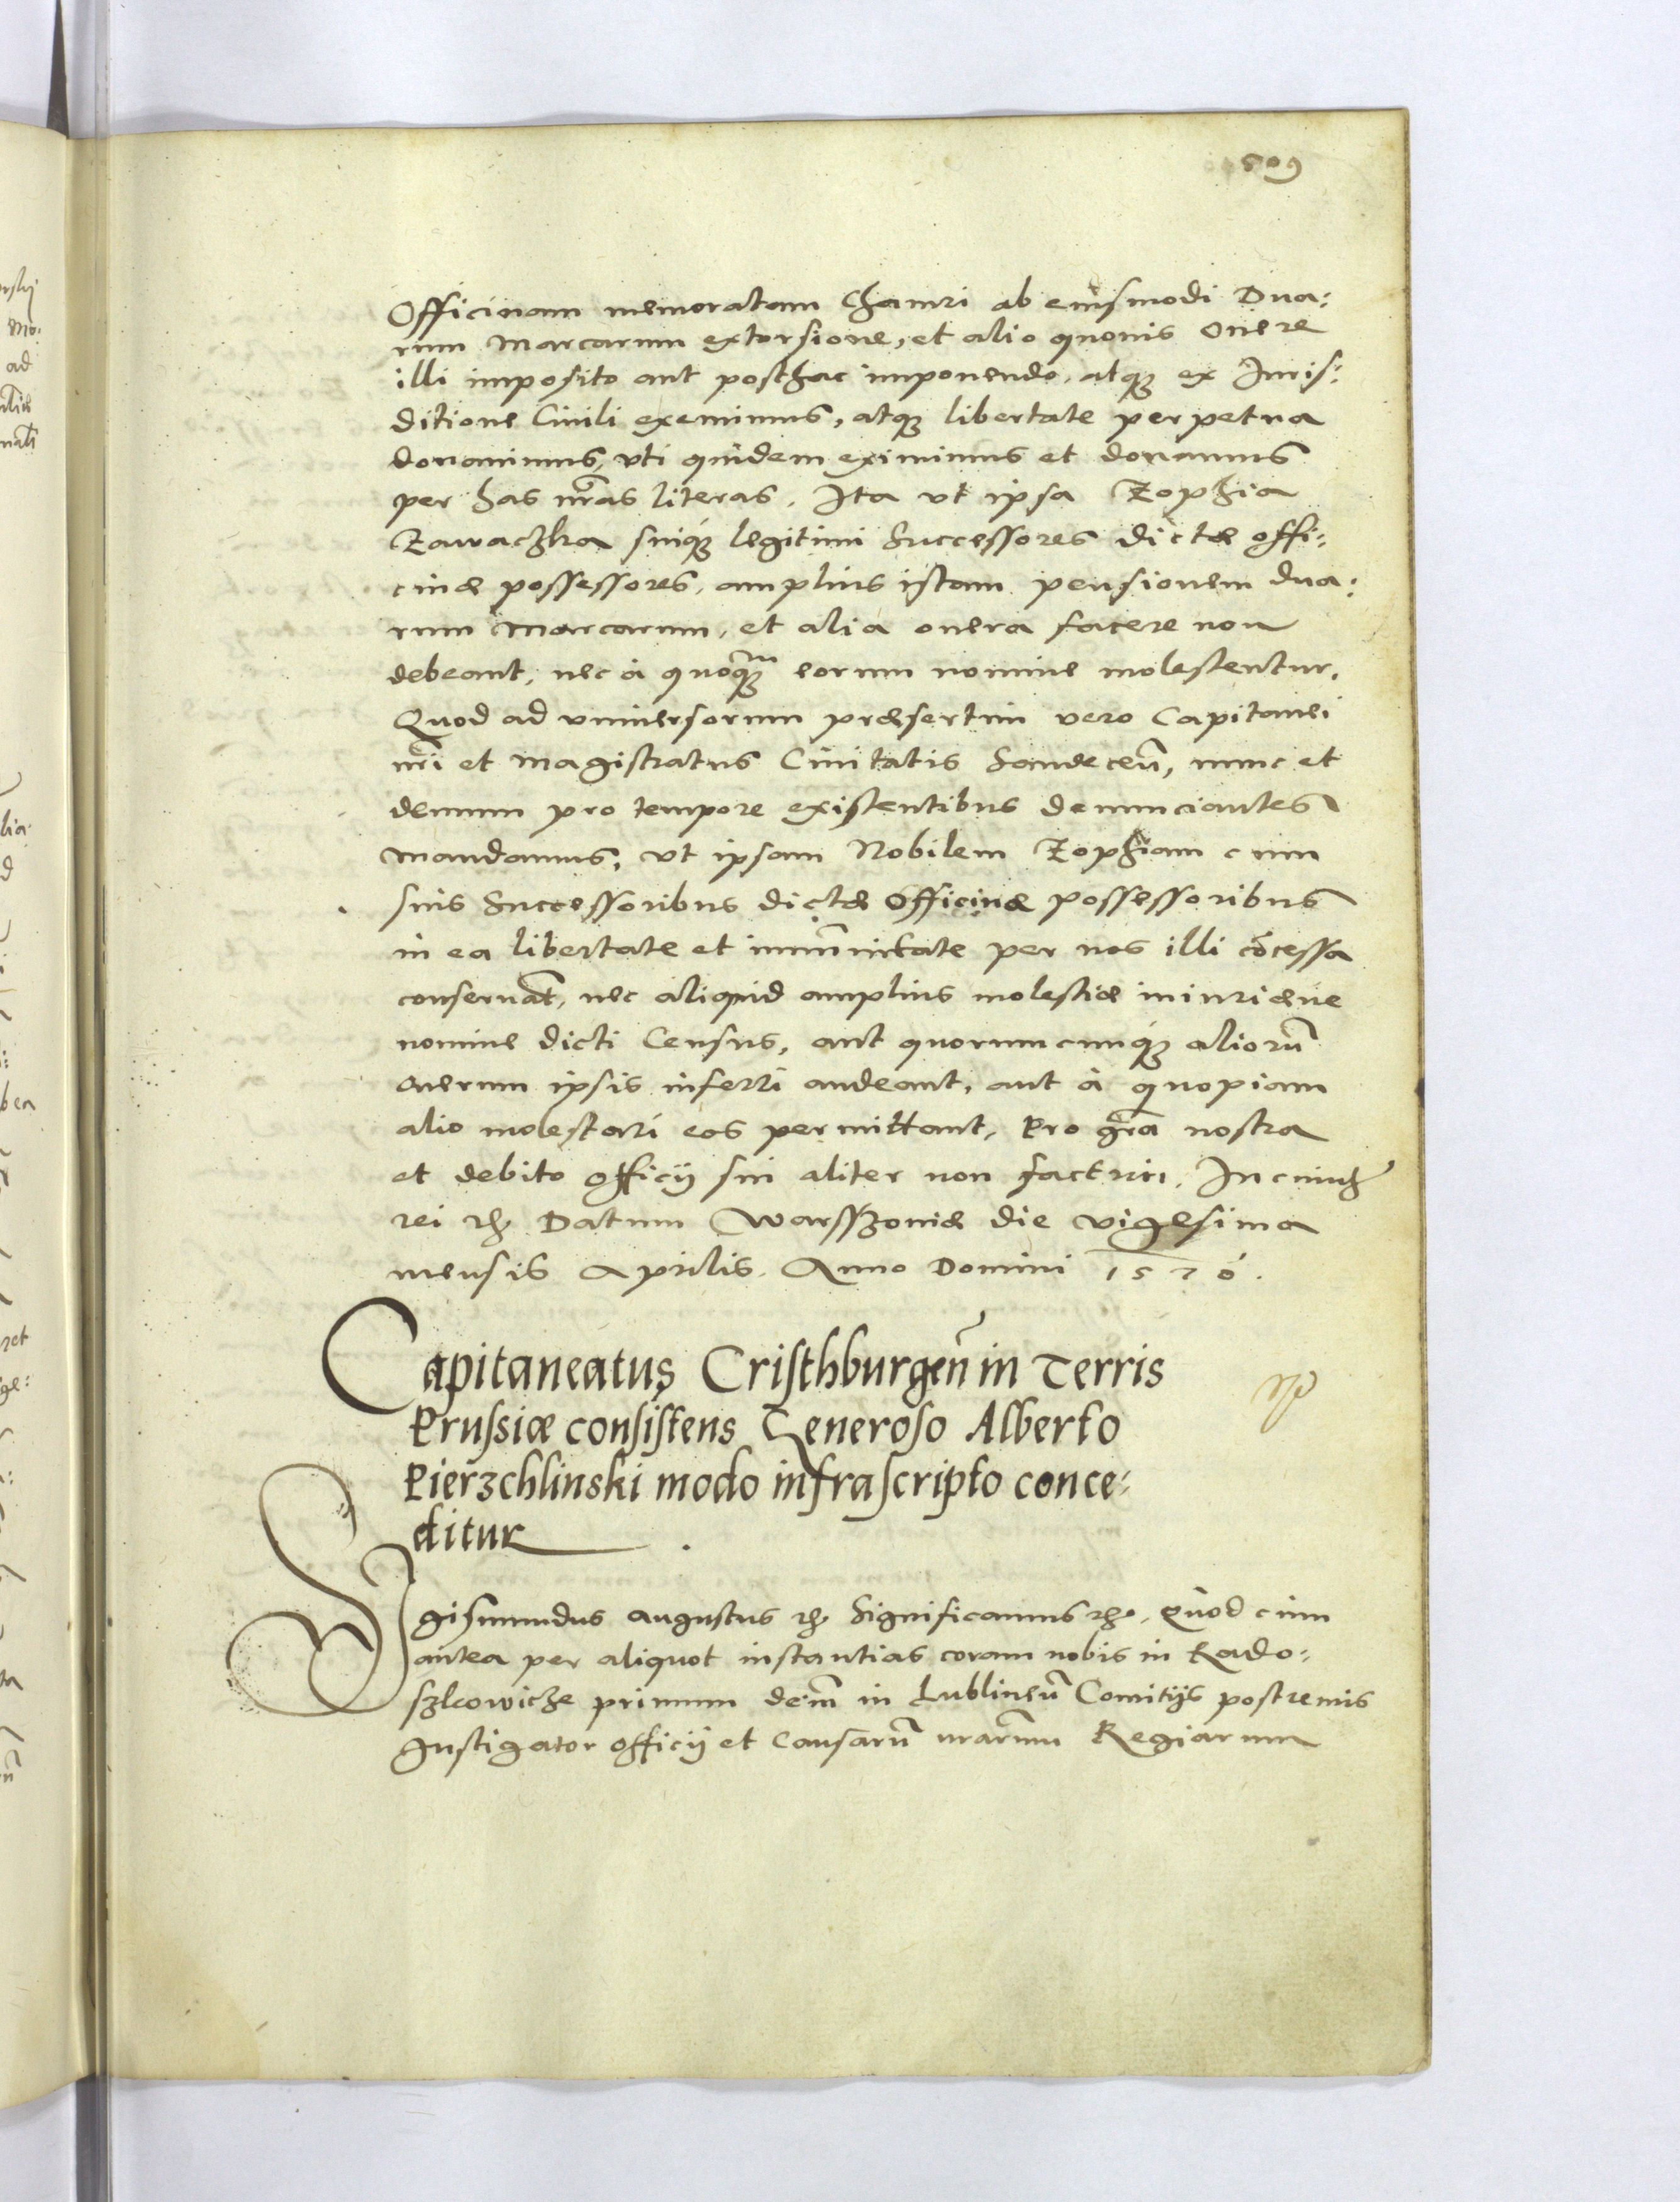 509
Officinam memoratam Chamri ab eiusmodi Dua:
rum Marcarum extorsione, et alio quouis onere
illi imposito aut posthac imponendo, atq3 ex Iuris:
ditione Ciuili exemimus, atq3 libertate perpetua
donauimus, vti quidem eximimus et donamus
per has nr̃as literas. Ita vt ipsa Zophia
Zawaczka suiq3 legitimi Successores dictæ offi:
cinæ possessores, amplius istam pensionem dua:
rum Marcarum, et alia onera facere non
debeant, nec à quoq̃ eorum nomine molestentur.
Quod ad vniuersorum præsertim vero Capitanei
nr̃i et Magistratus Ciuitatis Sandeceñ, nunc et
demum pro tempore existentibus denunciantes
mandamus, vt ipsam Nobilem Zophiam cum
suis Successoribus dictæ Officinæ possessoribus
in ea libertate et im̃unitate per nos illi cõcessa
conseruẽt, nec aliquid amplius molestiæ iniuriæue
nomine dicti Census, aut quorumcunq3 aliorũ
onerum ipsis inferri audeant, aut à quopiam
alio molestari eos permittant, Pro gr̃a nostra
et debito officij sui aliter non facturi. In cuius
rei ꝛc̃ Datum Warsszouiæ die vigesima
mensis Aprilis. Anno Domini 1570.
Capitaneatus Cristhburgeñ in Terris
Prussiæ consistens Generoso Alberto
Pierzchlinski modo infrascripto conce:
ditur.
Sigismundus Augustus ꝛc̃ Significamus ꝛc̃. Quod cum
antea per aliquot instantias coram nobis in Rado:
szkowicze primum dem̃ in Lublineñ Comitijs postremis
Instigator officij et Causarũ nrarum Regiarum